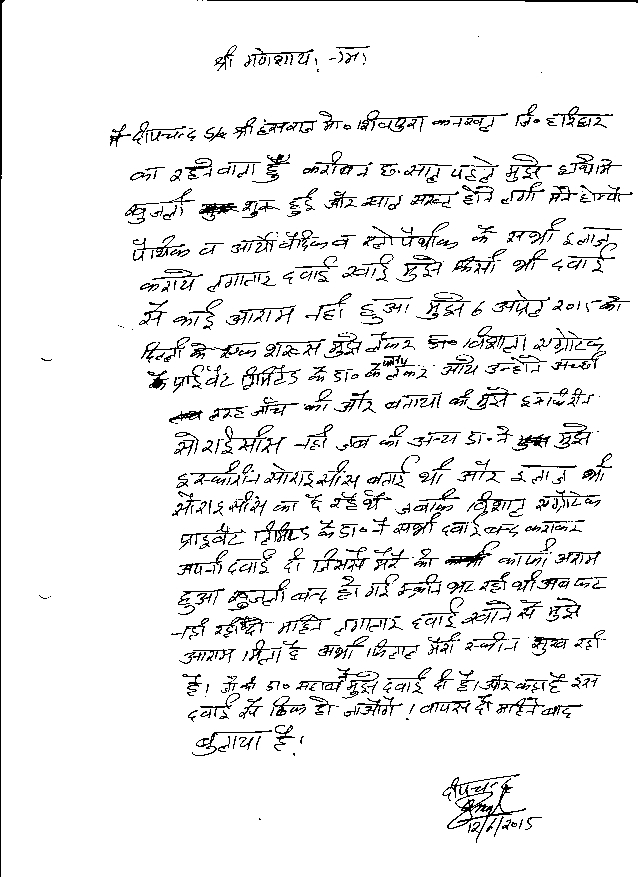 श्री गणेशाय: नम:
मैं दीपचन्द S/o श्री हंसवान मो० शिवपुरा कनखल जि० हरिद्वार
का रहने वाला हूँ करीबन छ: साल पहले मुझे शरीर में
खुजली शुरू हुई और खाल सख्त होने लगी मैंने होम्यो
पैथिक व आर्यावैदिक व एलोपैथीक के सभी इलाज
कराये लगातार दवाई खाई मुझे किसी भी दवाई
से कोई आराम नहीं हुआ मुझे 6 अप्रैल 2015 को
दिल्ली के एक शख्स मुझे लेकर डा० विशाल एग्रोटेक
के प्राईवेट लिमिटेड के डा० के पास लेकर आये उन्होंने अच्छी
तरह जाँच की और बताया की मुझे
सोराईसीस नहीं जब की अन्य डा० ने मुझे
सोराइसीस बताई थी और इलाज भी
सौराइसीस का दे रहे थे जबकि विशाल एग्रोटेक
प्राइवेट लिमिटेड के डा० ने सभी दवाई बन्द कराकर
अपनी दवाई दी जिससे मेरे को काफी आराम
हुआ खुजली बन्द हो गई स्कीन फट रही थी अब फट
नहीं रही दो महिने लगातार दवाई खाने से मुझे
आराम मिला है अभी फिलाल मेरी स्कीन सुख रही
है। जो की डा० साहब ने मुझे दवाई दी है। और कहा है इस
दवाई से ठिक हो जाओगे। वापस दो महिने बाद
बुलाया है।
दीपचन्द
12/6/2015